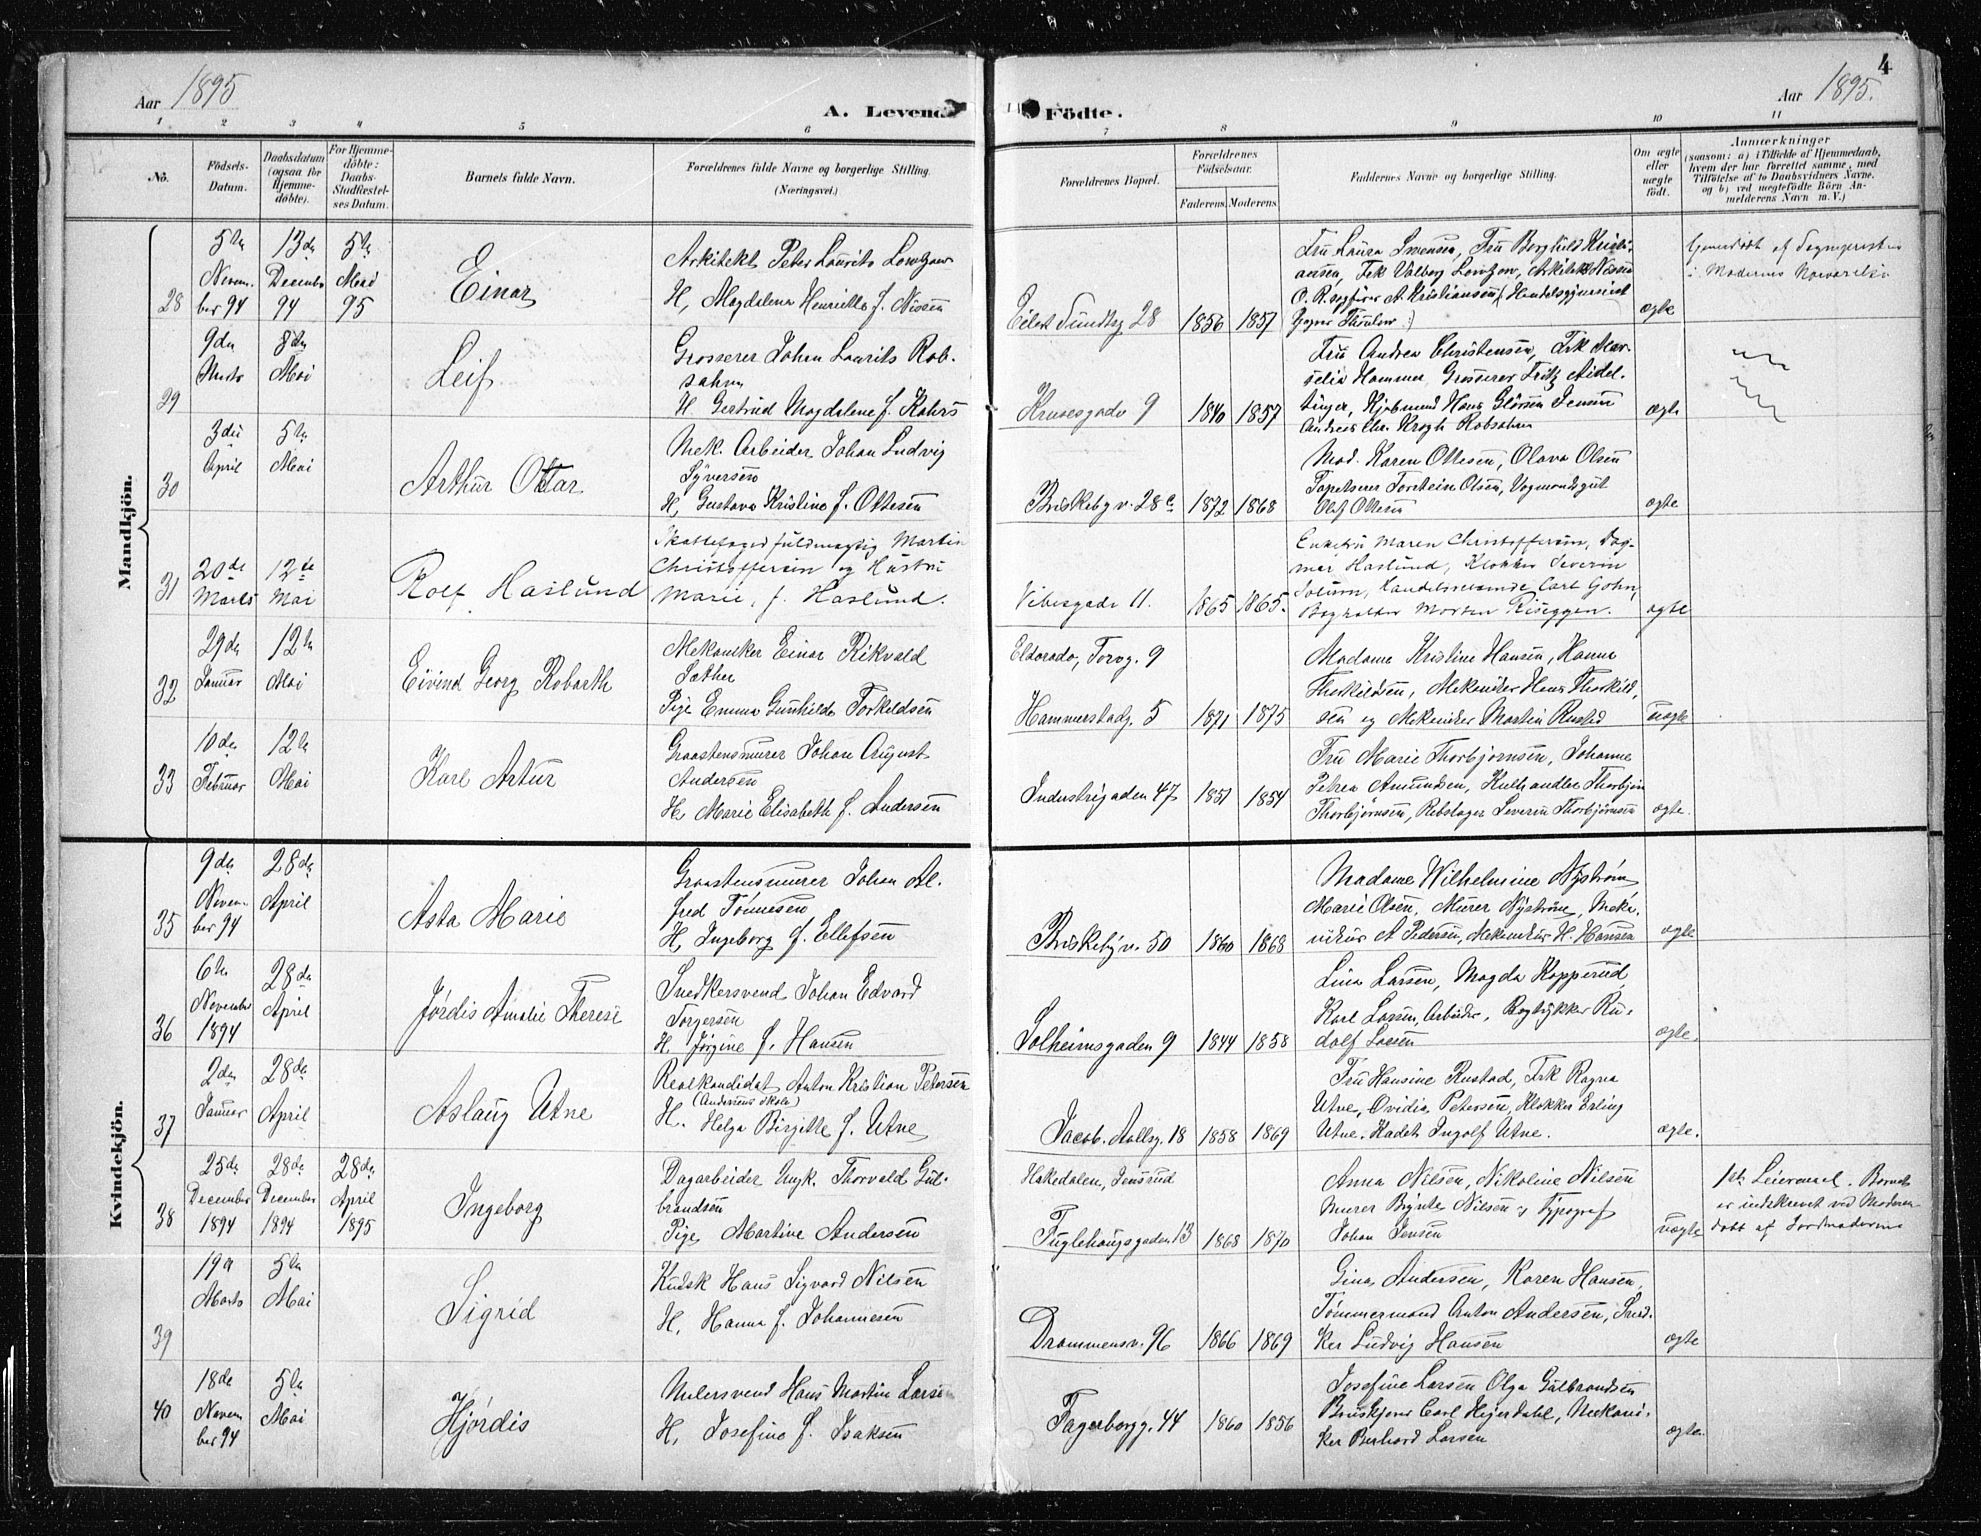 4
Aar 1895
A. Levende
Födte.
Aar 1895.
1 2 3 4 5 6 7 8 9 10 11
No.
Födsels-
Datum.
Daabsdatum
(ogsaa for
Hjemme-
döbte).
For Hjemme-
döbte:
Daabs-
Stadfæstel-
ses Datum.
Barnets fulde Navn.
Forældrenes fulde Navne og borgerlige Stilling.
(Næringsvei.)
Forældrenes Bopæl.
Forældrenes
Födselsaar.
Faderens. Moderens.
Faddernes Navne og borgerlige Stilling.
Om ægte
eller
uægte
födt.
Anmærkninger
(saasom: a) i Tilfælde af Hjemmedaab,
hvem der har forrettet samme, med
Tilföielse af to Daabsvidners Navne,
og b) ved uegtefödte Börn An-
melderens Navn m. V.)
Mandkjön.
28
5te
Novem-
ber 94
13de
December
94
5te
Mai
95
Einar
Arkitekt Peter Laurits Lowtzow
H, Magdalena Henriette f. Nissen
Eilert Sundtsg 28
1856 1857
Fru Laura Svensen, Fru Borghild Kristi-
ansen, Frk Valborg Lowtzow, Arkitekt Nissen
O. R. sagfører A. Kristiansen,
ægte
Hjemmedøbt af Sognepresten
29
9de
Marts
8de
Mai
Leif
Grosserer Johan Laurits Rob-
sahm
H Gertrud Magdalene f. Kahrs
Krusesgade 9
1840 1857
Fru Andrea Christensen, Frk Mar-
selia Hammer, Grosserer Fritz
Andreas Chr. Krogh Robsahm
ægte
30
3die
April
5te
Mai
Arthur Ottar
Mek. Arbeider Johan Ludvig
Syversen
H, Gustava Kristine f. Ottesen
Briskebyv. 28 c
1872 1868
Mad. Karen Ottesen, Olava Olsen
Tapetserer Torstein Olsen, Vognmandsgut
Olaf Ottesen
ægte
31
20de
Marts
12te
Mai
Rolf Haslund
Skattefogedfuldmægtig Martin
Christoffersen og Hustru
Marie, f. Haslund.
Vibesgade 11.
1865 1865.
Enkefru Maren Christoffersen, Dag-
mar Haslund, Klokker Severin
Solum, Handelsreisende Carl Gohn,
Bogholder Morten Riseggen.
ægte
32
29de
Januar
12te
Mai
Eivind Georg Robarth
Mekaniker Einar Rikvald
Sather
Pige Emma Gunhilde Torkeldsen
Eldorado, Torvg. 9
Hammerstadg. 5
1871 1875
Madame Kristine Hansen, Hanna
Thorkildsen, Mekaniker Hans Thorkild-
sen og Mekaniker Martin Rustad
uægte
33
10de
Februar
12te
Mai
Karl Artur
Graastensmurer Johan August
Andersen
H. Marie Elisabeth f. Andersen
Industrigaden 47
1851 1854
Fru Marie Thorbjørnsen, Johanne
Petrea Amundsen, Kulhandler Thorbjørn
Thorbjørnsen, Rebslager Severin Thorbjørnsen
ægte.
Kvindekjön.
35
9de
Novem-
ber 94
28de
April
Asta Marie
Graastensmurer Johan Al-
fred Tønnesen
H, Ingeborg f. Ellefsen
Briskebyv. 50
1860 1868
Madame Wilhelmine Nystrøm
Marie Olsen, Murer Nystrøm, Meka-
nikus A Pedersen, Mekanikus H. Hansen
ægte
36
6te
November
1894
28de
April
Jørdis Amalie Therese
Snedkersvend Johan Edvard
Torgersen
H. Jørgine f. Hansen
Solheimsgaden 9
1844 1858
Lina Larsen, Magda Kopperud,
Karl Larsen, Arbeider, Bogtrykker Ru-
dolf Larsen
ægte.
37
2den
Januar
28de
April
Aslaug Utne
Realkandidat Anton Kristian Petersen
(Andersens Skole)
H. Helga Birgitte f. Utne
Jacob Aallsg. 18
1858 1869
Fru Hansine Rustad, Frk Ragna
Utne, Ovidia Petersen, Klokker Erling
Utne. Kadet Ingolf Utne.
ægte.
38
25de
December
1894
28de
December
1894
28de
April
1895
Ingeborg
Dagarbeider Ungk. Thorvald Gul-
brandsen
Pige Martine Andersen
Hakedalen, Jensrud
Fuglehaugsgaden 13
1868 1870
Anna Nilsen, Nikoline Nilsen
Murer Nilsen og Typograf
Johan Jensen
uægte
1ste Leiermaal. Barnet
er indskrevet ved Moderen
døbt af Jordmoderen
39
19de
Marts
5te
Mai
Sigrid
Kudsk Hans Sigvard Nilsen
H, Hanna f. Johannesen
Drammensv. 96
1866 1869
Gina Andersen, Karen Hansen,
Tømmermand Anton Andersen, Sned-
ker Ludvig Hansen
ægte
40
18de
Novem
ber 94
5te
Mai
Hjørdis
Malersvend Hans Martin Larsen
H, Josefine f. Isaksen
Fagerborgg. 44
1860 1856
Josefine Larsen Olga Gulbrandsen
Carl Hejerdahl, Mekani-
ker Berhard Larsen
ægte.